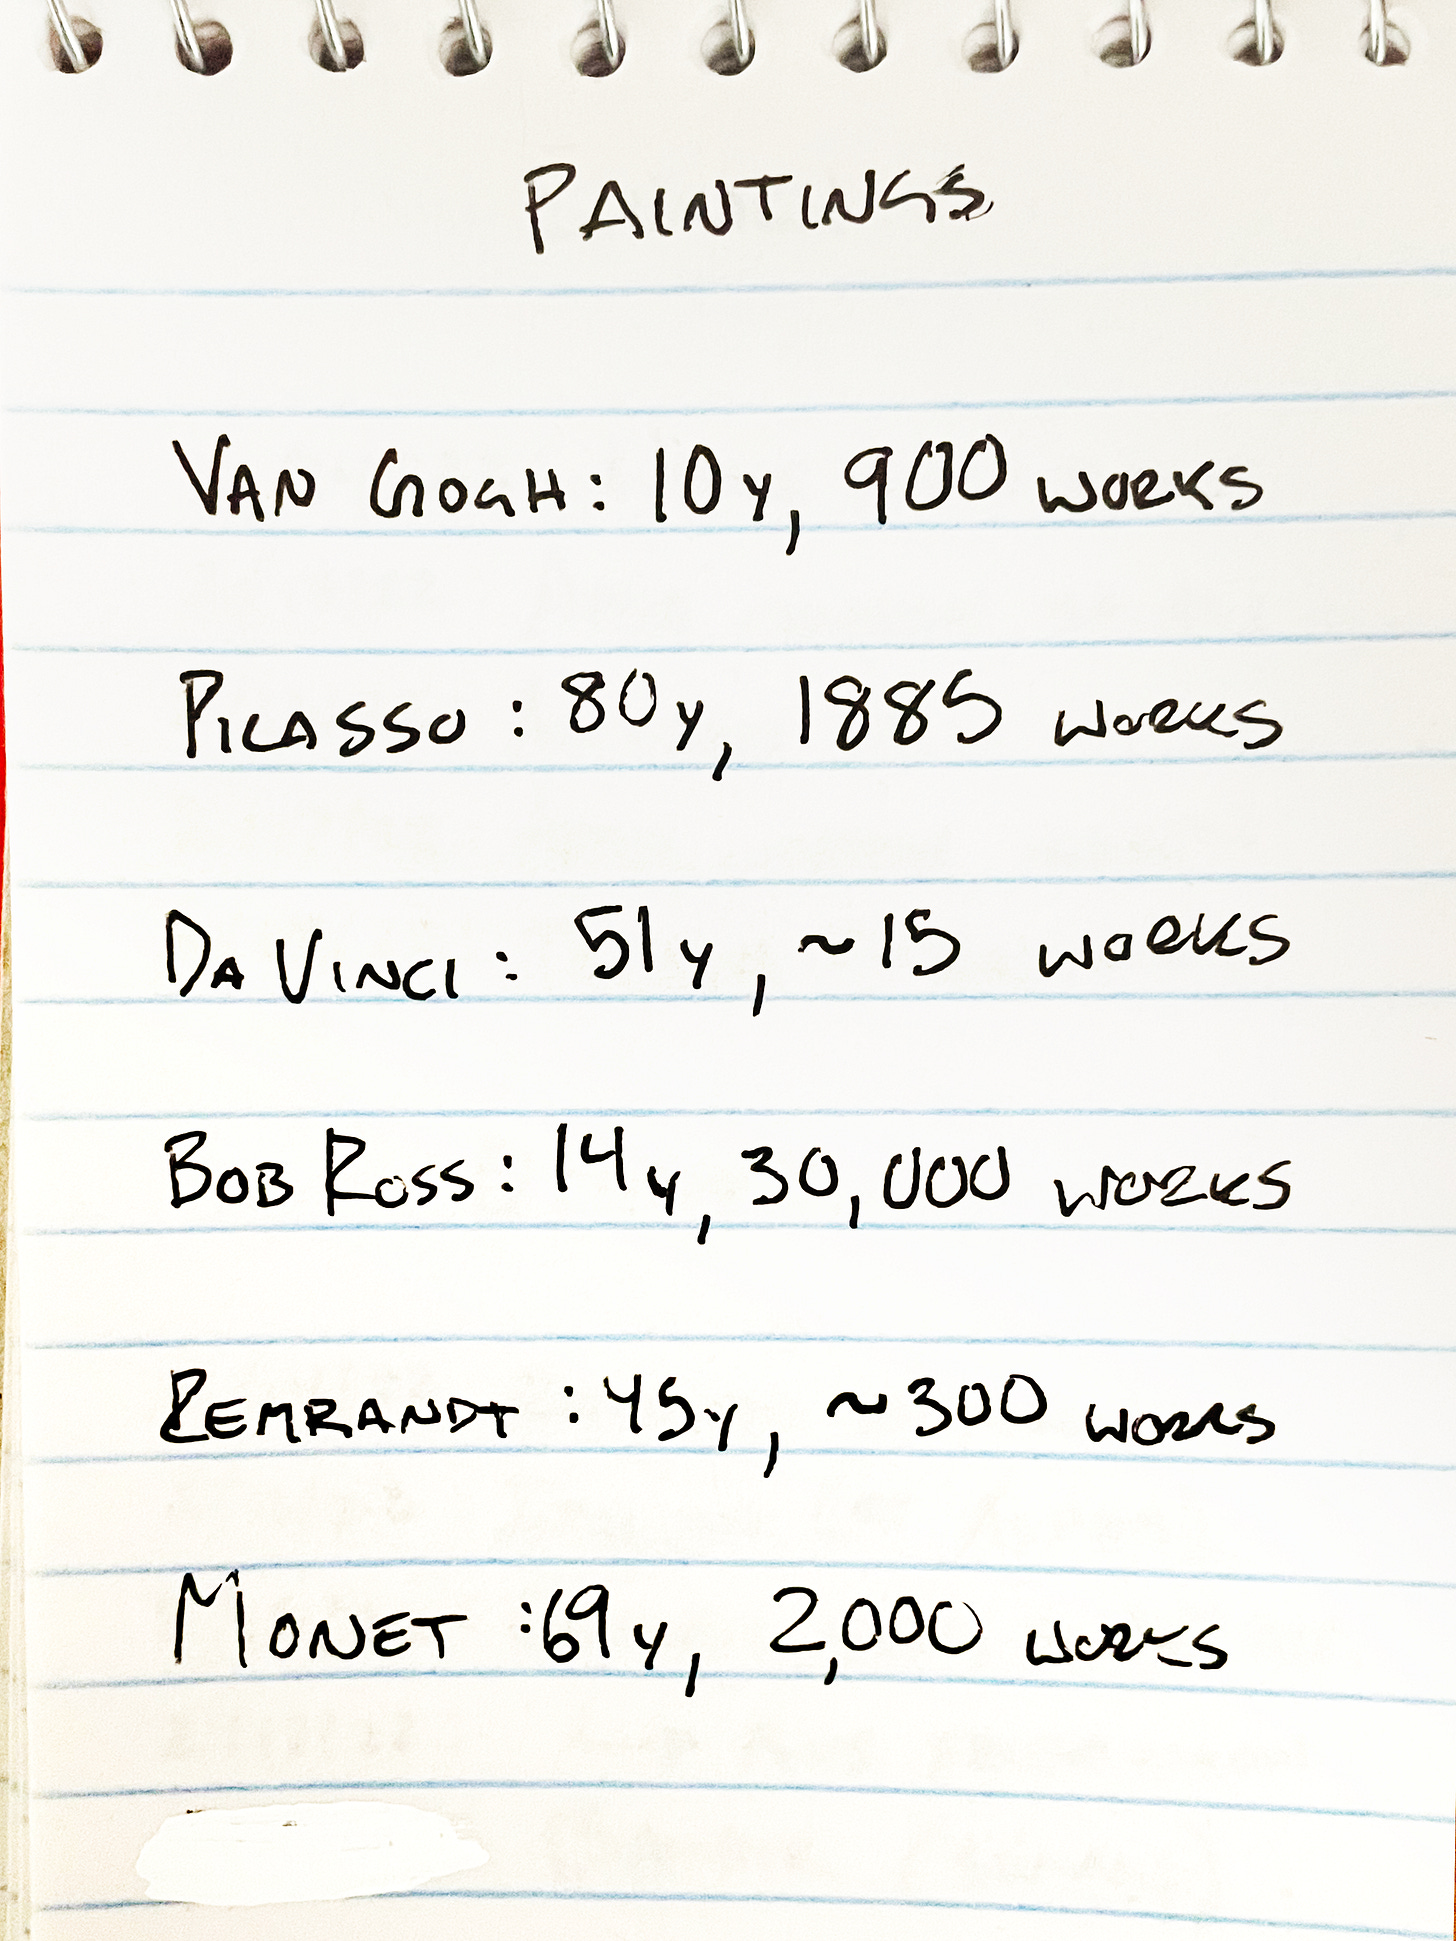 PAINTINGS
VAN GOGH: 10y, 900 WORKS
PICASSO: 80y, 1885 WORKS
DA VINCI: 51y, ~15 WORKS
BOB ROSS: 14y, 30,000 WORKS
REMBRANDT: 45y, ~300 WORKS
MONET: 69y, 2,000 WORKS